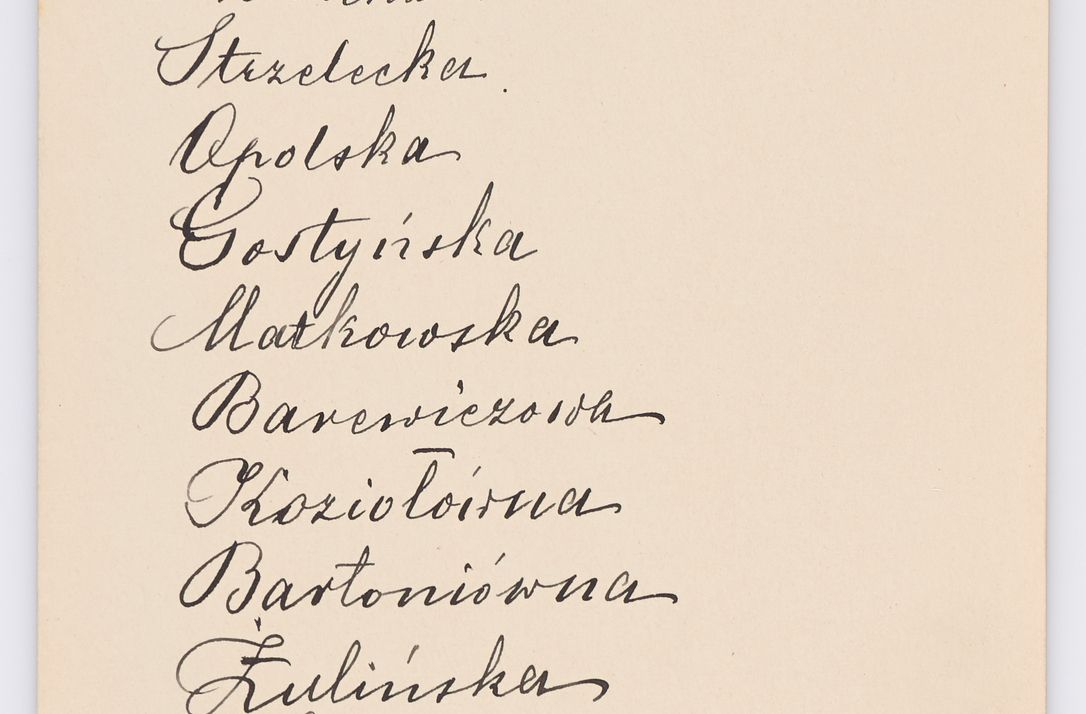 Strzelecka
Opolska
Gostyńska
Matkowska
Barewiczowa
Koziołówna
Bartoniówna
Żulińska